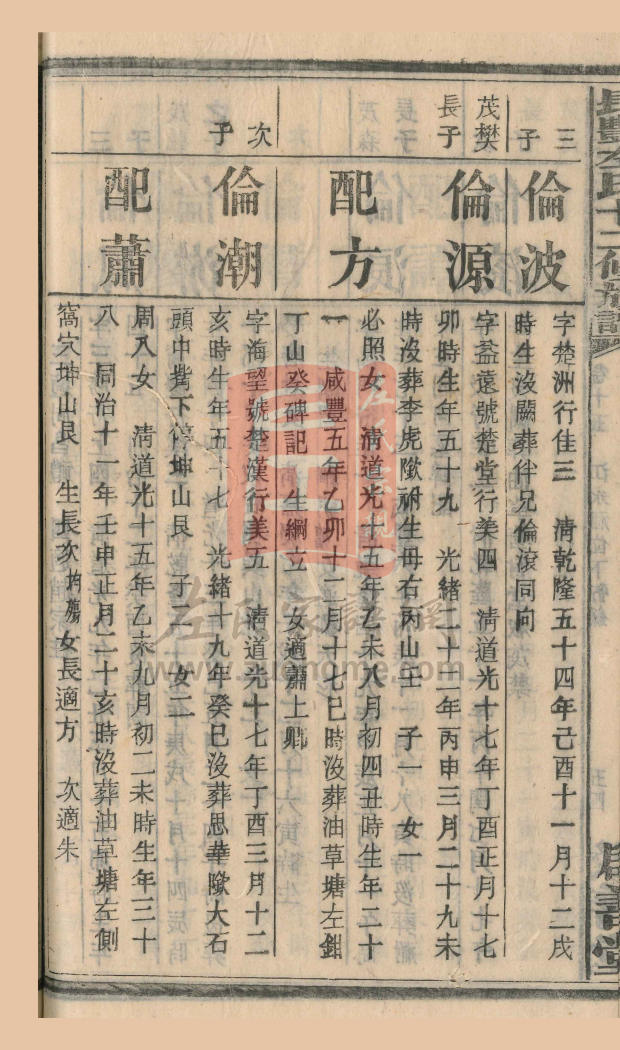 三子
倫波
字楚洲行佳三 清乾隆五十四年己酉十一月十二戌
時生沒闕葬伴兄倫滾同向
茂樊長子
倫源
字益遠號楚堂行美四 清道光十七年丁酉正月十七
卯時生年五十九 光緒二十二年丙申三月二十九未
時沒葬李虎墩祔生母右丙山壬 子一 女一
配方
必照女 清道光十五年乙未八月初四丑時生年二十
一 咸豐五年乙卯十二月十七巳時沒葬油草塘左鉗
丁山癸碑記 生綱立 女適蕭上
次子
倫潮
字海望號楚漢行美五 清道光十七年丁酉三月十二
亥時生年五十七 光緒十九年癸巳沒葬思華墩大石
頭中嘴下停坤山艮 子二 女二
配蕭
周入女 清道光十五年乙未九月初二未時生年三十
八 同治十一年壬申正月二十亥時沒葬油草塘左側
窩穴坤山艮 生長次均殤女長適方 次適朱
左氏家譜網
www.zuohome.com